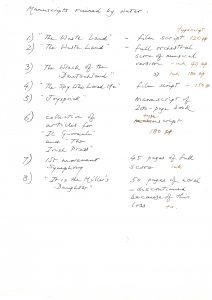 Manuscripts ruined by water.
typescript
1) "The Waste Land" - film script 120 pp
2) "The Waste Land" - full orchestral
score of musical
version - ink 60 pp
3) "The Wreck of the
Deutschland" - " ink 180 pp
4) "The Spy Who Loved Me" film script - 150 pp
5) "Joysprick" Manuscript of
200-page book
6) collection of
articles for
"Il Giornale"
and The
Irish Press
type
script
180 pp
7) 1st movement
Symphony 45 pages of full
score ink
8) "It is the Miller's
Daughter" 50 pages of novel
- discontinued
because of this
loss